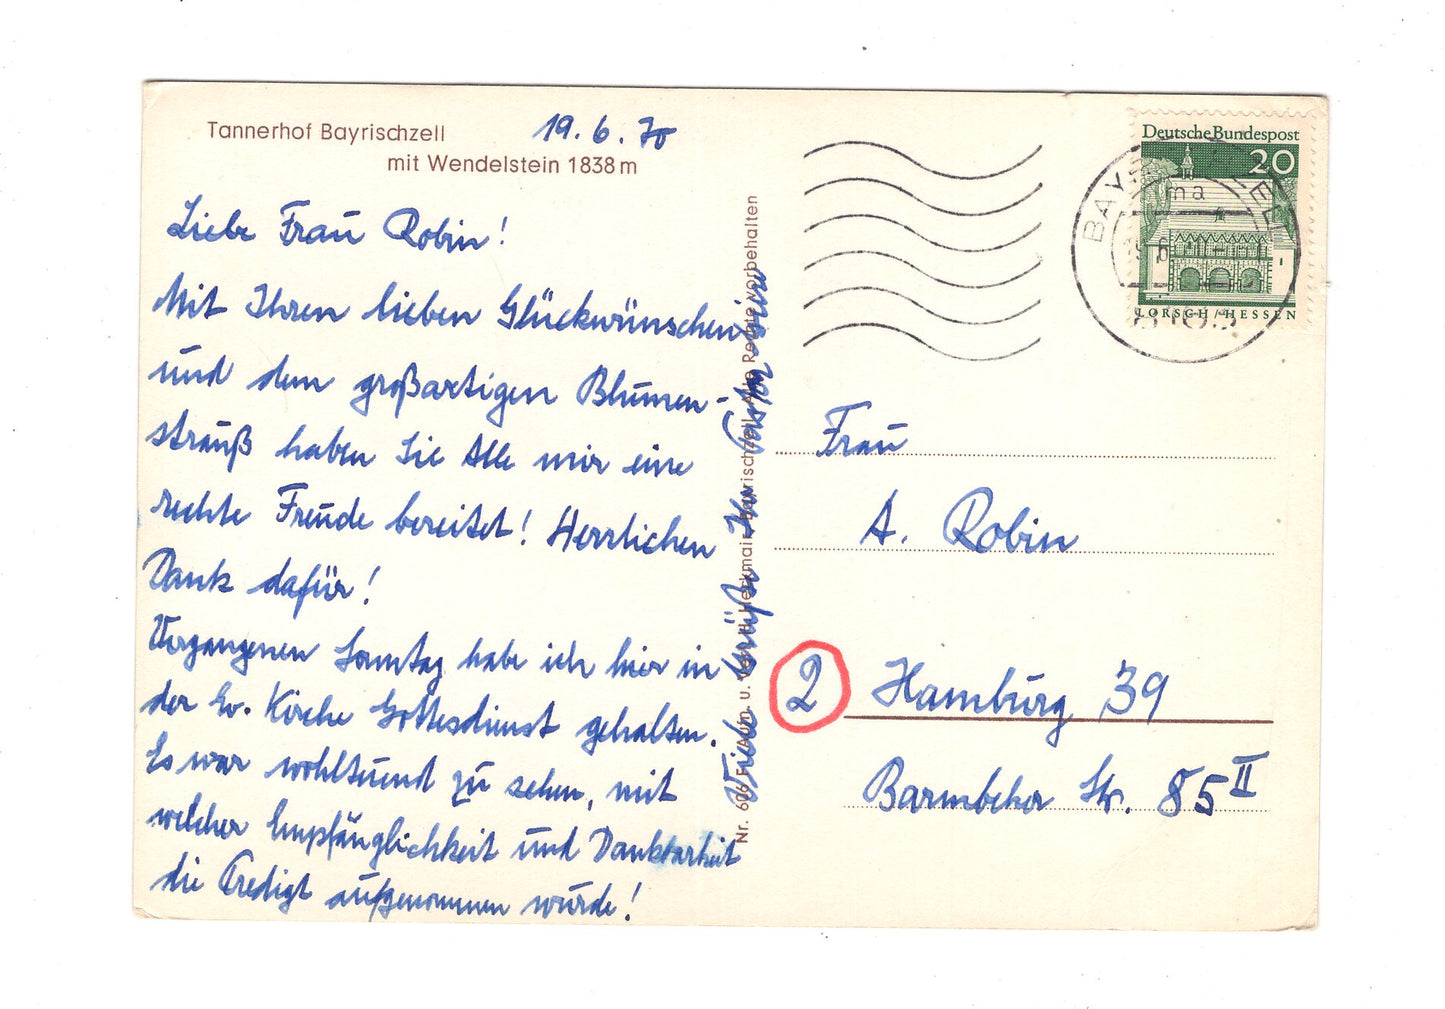 Tannerhof Bayrischzell
mit Wendelstein 1838 m
19. 6. 70
Liebe Frau Robin!
Mit Ihren lieben Glückwünschen
und dem großartigen Blumen-
strauß haben Sie Alle mir eine
rechte Freude bereitet! Herrlichen
Dank dafür!
Vergangenen Sonntag habe ich hier in
der Ev. Kirche Gottesdienst gehalten.
Es war wohltuend zu sehen, mit
welcher Empfänglichkeit und Dankbarheit
die Predigt aufgenommen wurde!
Viele Grüße Ihr Pastor
Nr. 606 F Aufn. u. Verl. H. Heckmair, Bayrischzell. Alle Rechte vorbehalten
Deutsche Bundespost
20
LORSCH/HESSEN
Frau
A. Robin
2 Hamburg 39
Barmbeker Str. 85 II